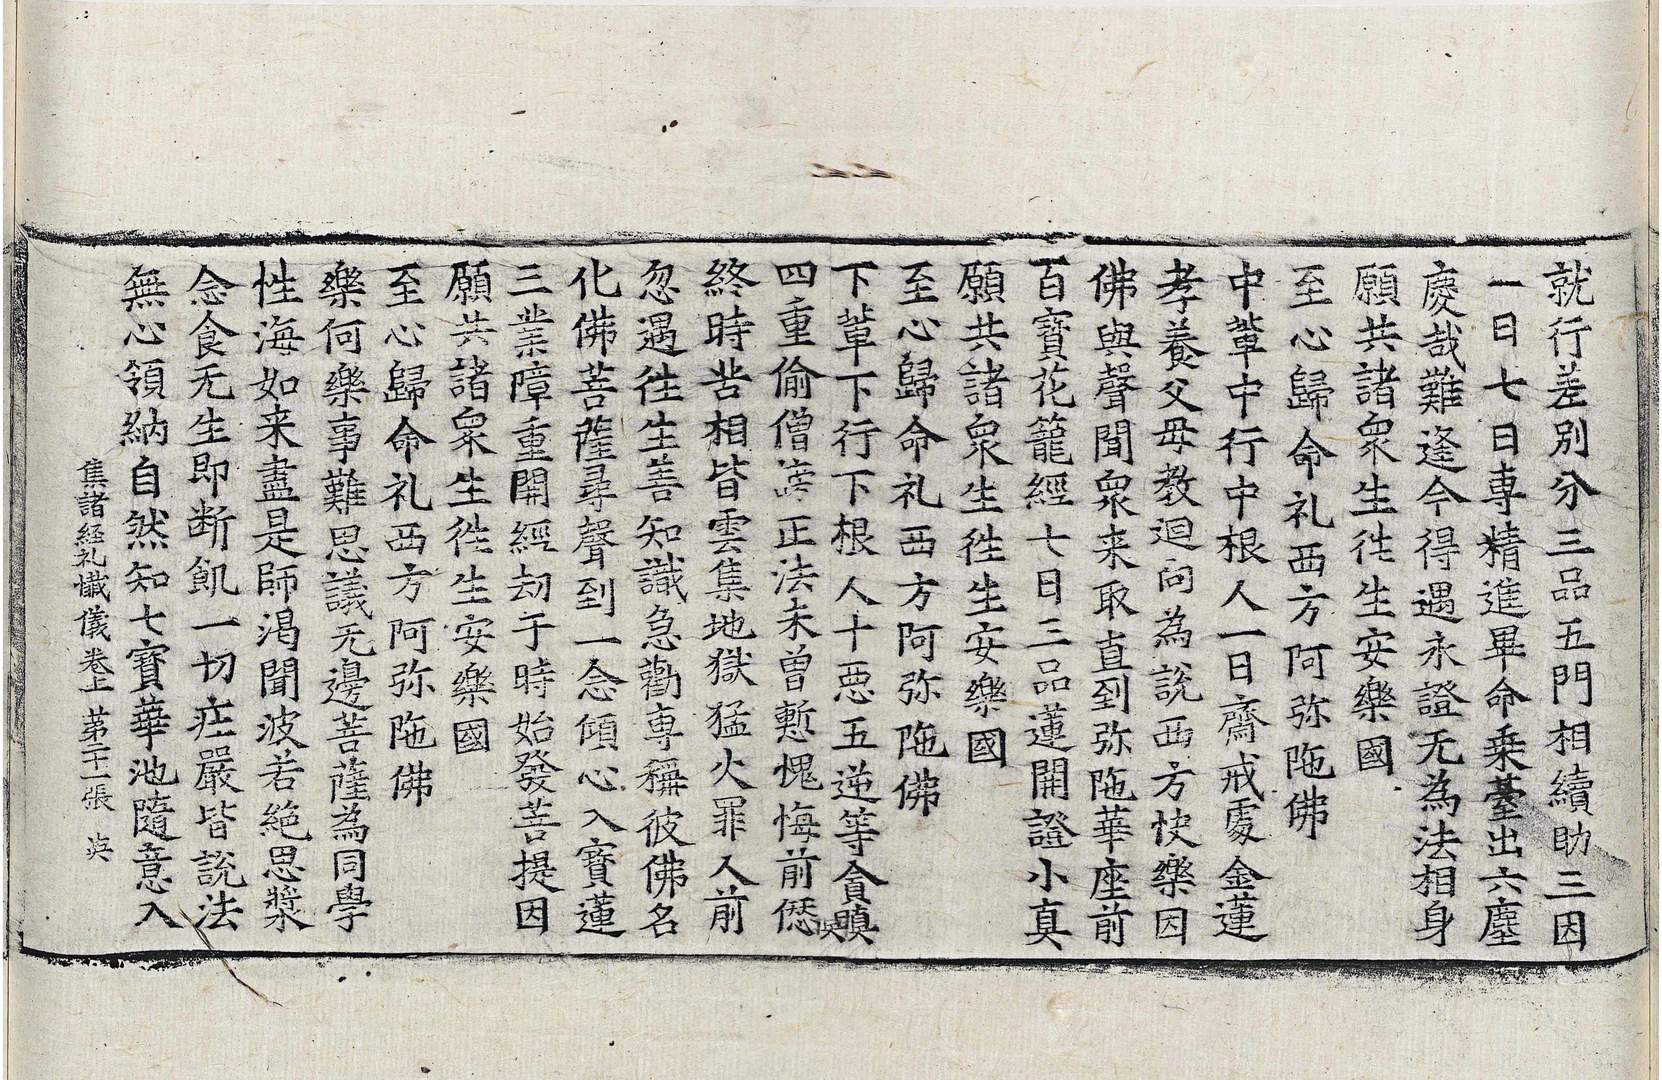 就行差別分三品五門相續助三因
一日七日專精進畢命乘臺出六塵
慶哉難逢今得遇永證无為法相身
願共諸衆生往生安樂國
至心歸命礼西方阿弥陁佛
中輩中行中根人一日齋戒處金蓮
孝養父母教迴向為說西方快樂因
佛與聲聞衆来取直到弥陁華座前
百寶花籠經七日三品蓮開證小真
願共諸衆生往生安樂國
至心歸命礼西方阿弥陁佛
下輩下行下根人十惡五逆等貪瞋
四重偷僧謗正法未曾慙愧悔前𠎝
終時苦相皆雲集地獄猛火罪人前
忽遇往生善知識急勸專稱彼佛名
化佛菩薩尋聲到一念傾心入寶蓮
三業障重開經劫于時始發菩提因
願共諸衆生往生安樂國
至心歸命礼西方阿弥陁佛
樂何樂事難思議无邊菩薩為同學
性海如来盡是師渴聞波若絶思漿
念食无生即断飢一切庄嚴皆說法
無心領納自然知七寶華池隨意入
集諸經礼懺儀卷上 第二十一張 英